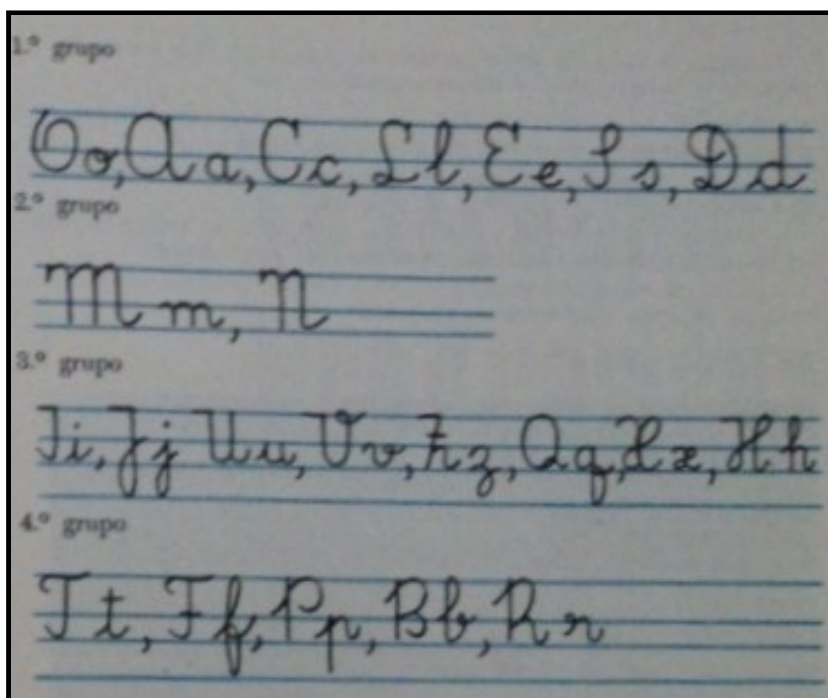 1.º grupo
Oo, Aa, Cc, Ll, Ee, Ss, Dd
2.º grupo
M m, N
3.º grupo
Ii, Jj Uu, Vv, Zz, Qq, Xx, Hh
4.º grupo
Tt, Ff, Pp, Bb, Rr